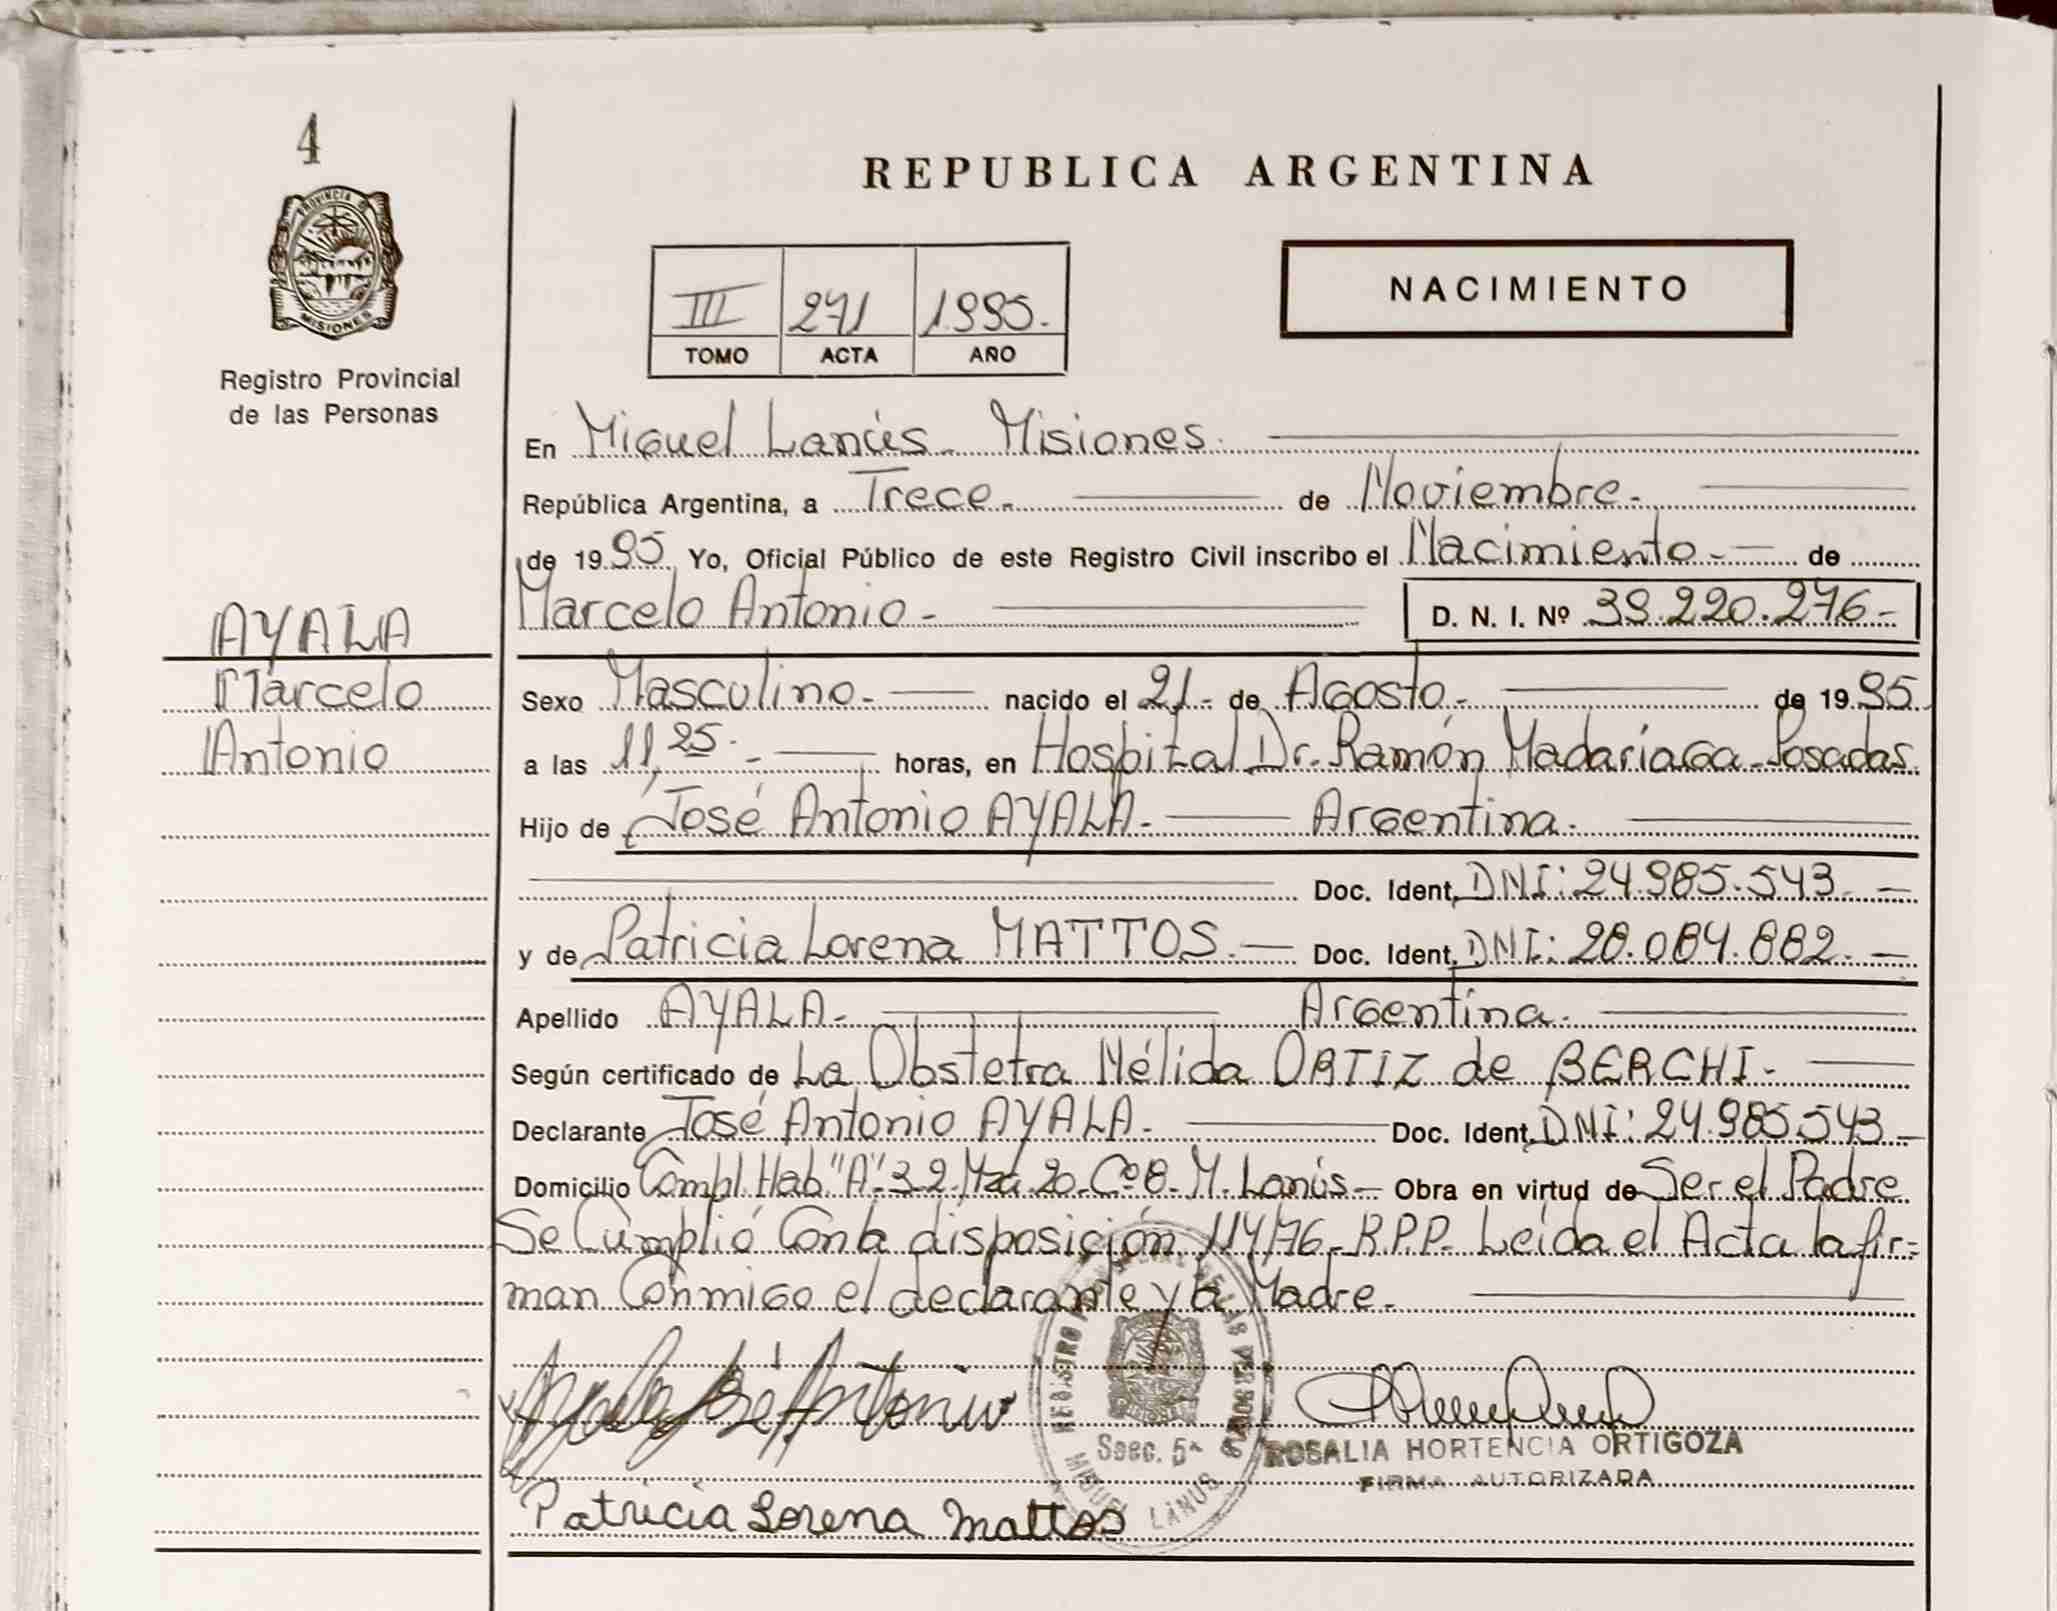 4
PROVINCIA DE
MISIONES
Registro Provincial
de las Personas
REPUBLICA ARGENTINA
III 271 1995.
TOMO ACTA AÑO
NACIMIENTO
En Miguel Lanús - Misiones.
República Argentina, a Trece.- de Noviembre.-
de 1995 Yo, Oficial Público de este Registro Civil inscribo el Nacimiento.- de
Marcelo Antonio.- D. N. I. Nº 39.220.276.-
AYALA
Marcelo
Antonio
Sexo Masculino.- nacido el 21.- de Agosto.- de 1995.
a las 11,25.- horas, en Hospital Dr. Ramón Madariaga - Posadas
Hijo de José Antonio AYALA.- Argentina.
Doc. Ident. DNI: 24.985.543.-
y de Patricia Lorena MATTOS.- Doc. Ident. DNI: 28.084.882.-
Apellido AYALA.- Argentina.
Según certificado de La Obstetra Nélida ORTIZ de BERCHI.-
Declarante José Antonio AYALA.- Doc. Ident. DNI: 24.985.543.-
Domicilio Compl. Hab. "A".32.Mza.20.Cº8.M. Lanús.- Obra en virtud de Ser el Padre
Se Cumplió Con la disposición 114/76 - R.P.P. Leída el Acta la fir-
man Conmigo el declarante y la Madre.
Ayala José Antonio
REGISTRO PROVINCIAL DE LAS PERSONAS
Secc. 5ª
MIGUEL LANUS
ROSALIA HORTENCIA ORTIGOZA
FIRMA AUTORIZADA
Patricia Lorena Mattos